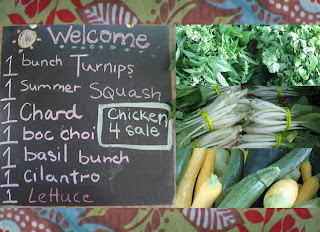 Welcome
1 bunch Turnips
1 Summer Squash
1 Chard
1 boc choi
1 basil bunch
1 Cilantro
1 Lettuce
Chicken
4 sale